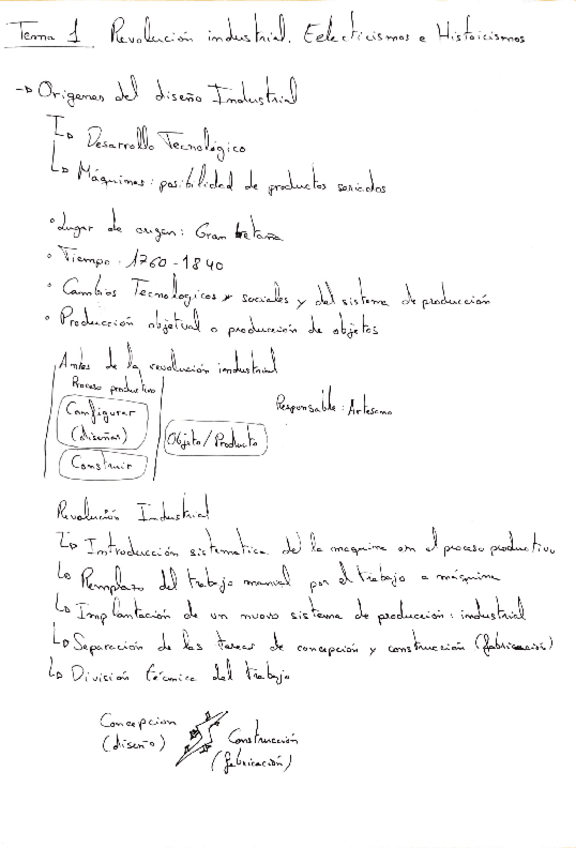 Tema 1 Revolución industrial. Eclecticismos e Histoicismos
→ Origenes del diseño Industrial
Desarrollo Tecnológico
Máquinas: posibilidad de productos seriados
• Lugar de origen: Gran Bretaña
• Tiempo: 1760-1840
• Cambios Tecnologicos, sociales y del sistema de producción
• Producción objetual o producción de objetos
Antes de la revolución industrial
Proceso productivo
Configurar
(diseñar)
Construir
Objeto/Producto
Responsable: Artesano
Revolución Industrial
Introducción sistematica de la maquina en el proceso productivo
Remplazo del trabajo manual por el trabajo a máquina
Implantación de un nuevo sistema de producción: industrial
Separación de las tareas de concepción y construcción (fabricación)
División técnica del trabajo
Concepcion
(diseño)
Construcción
(fabricación)